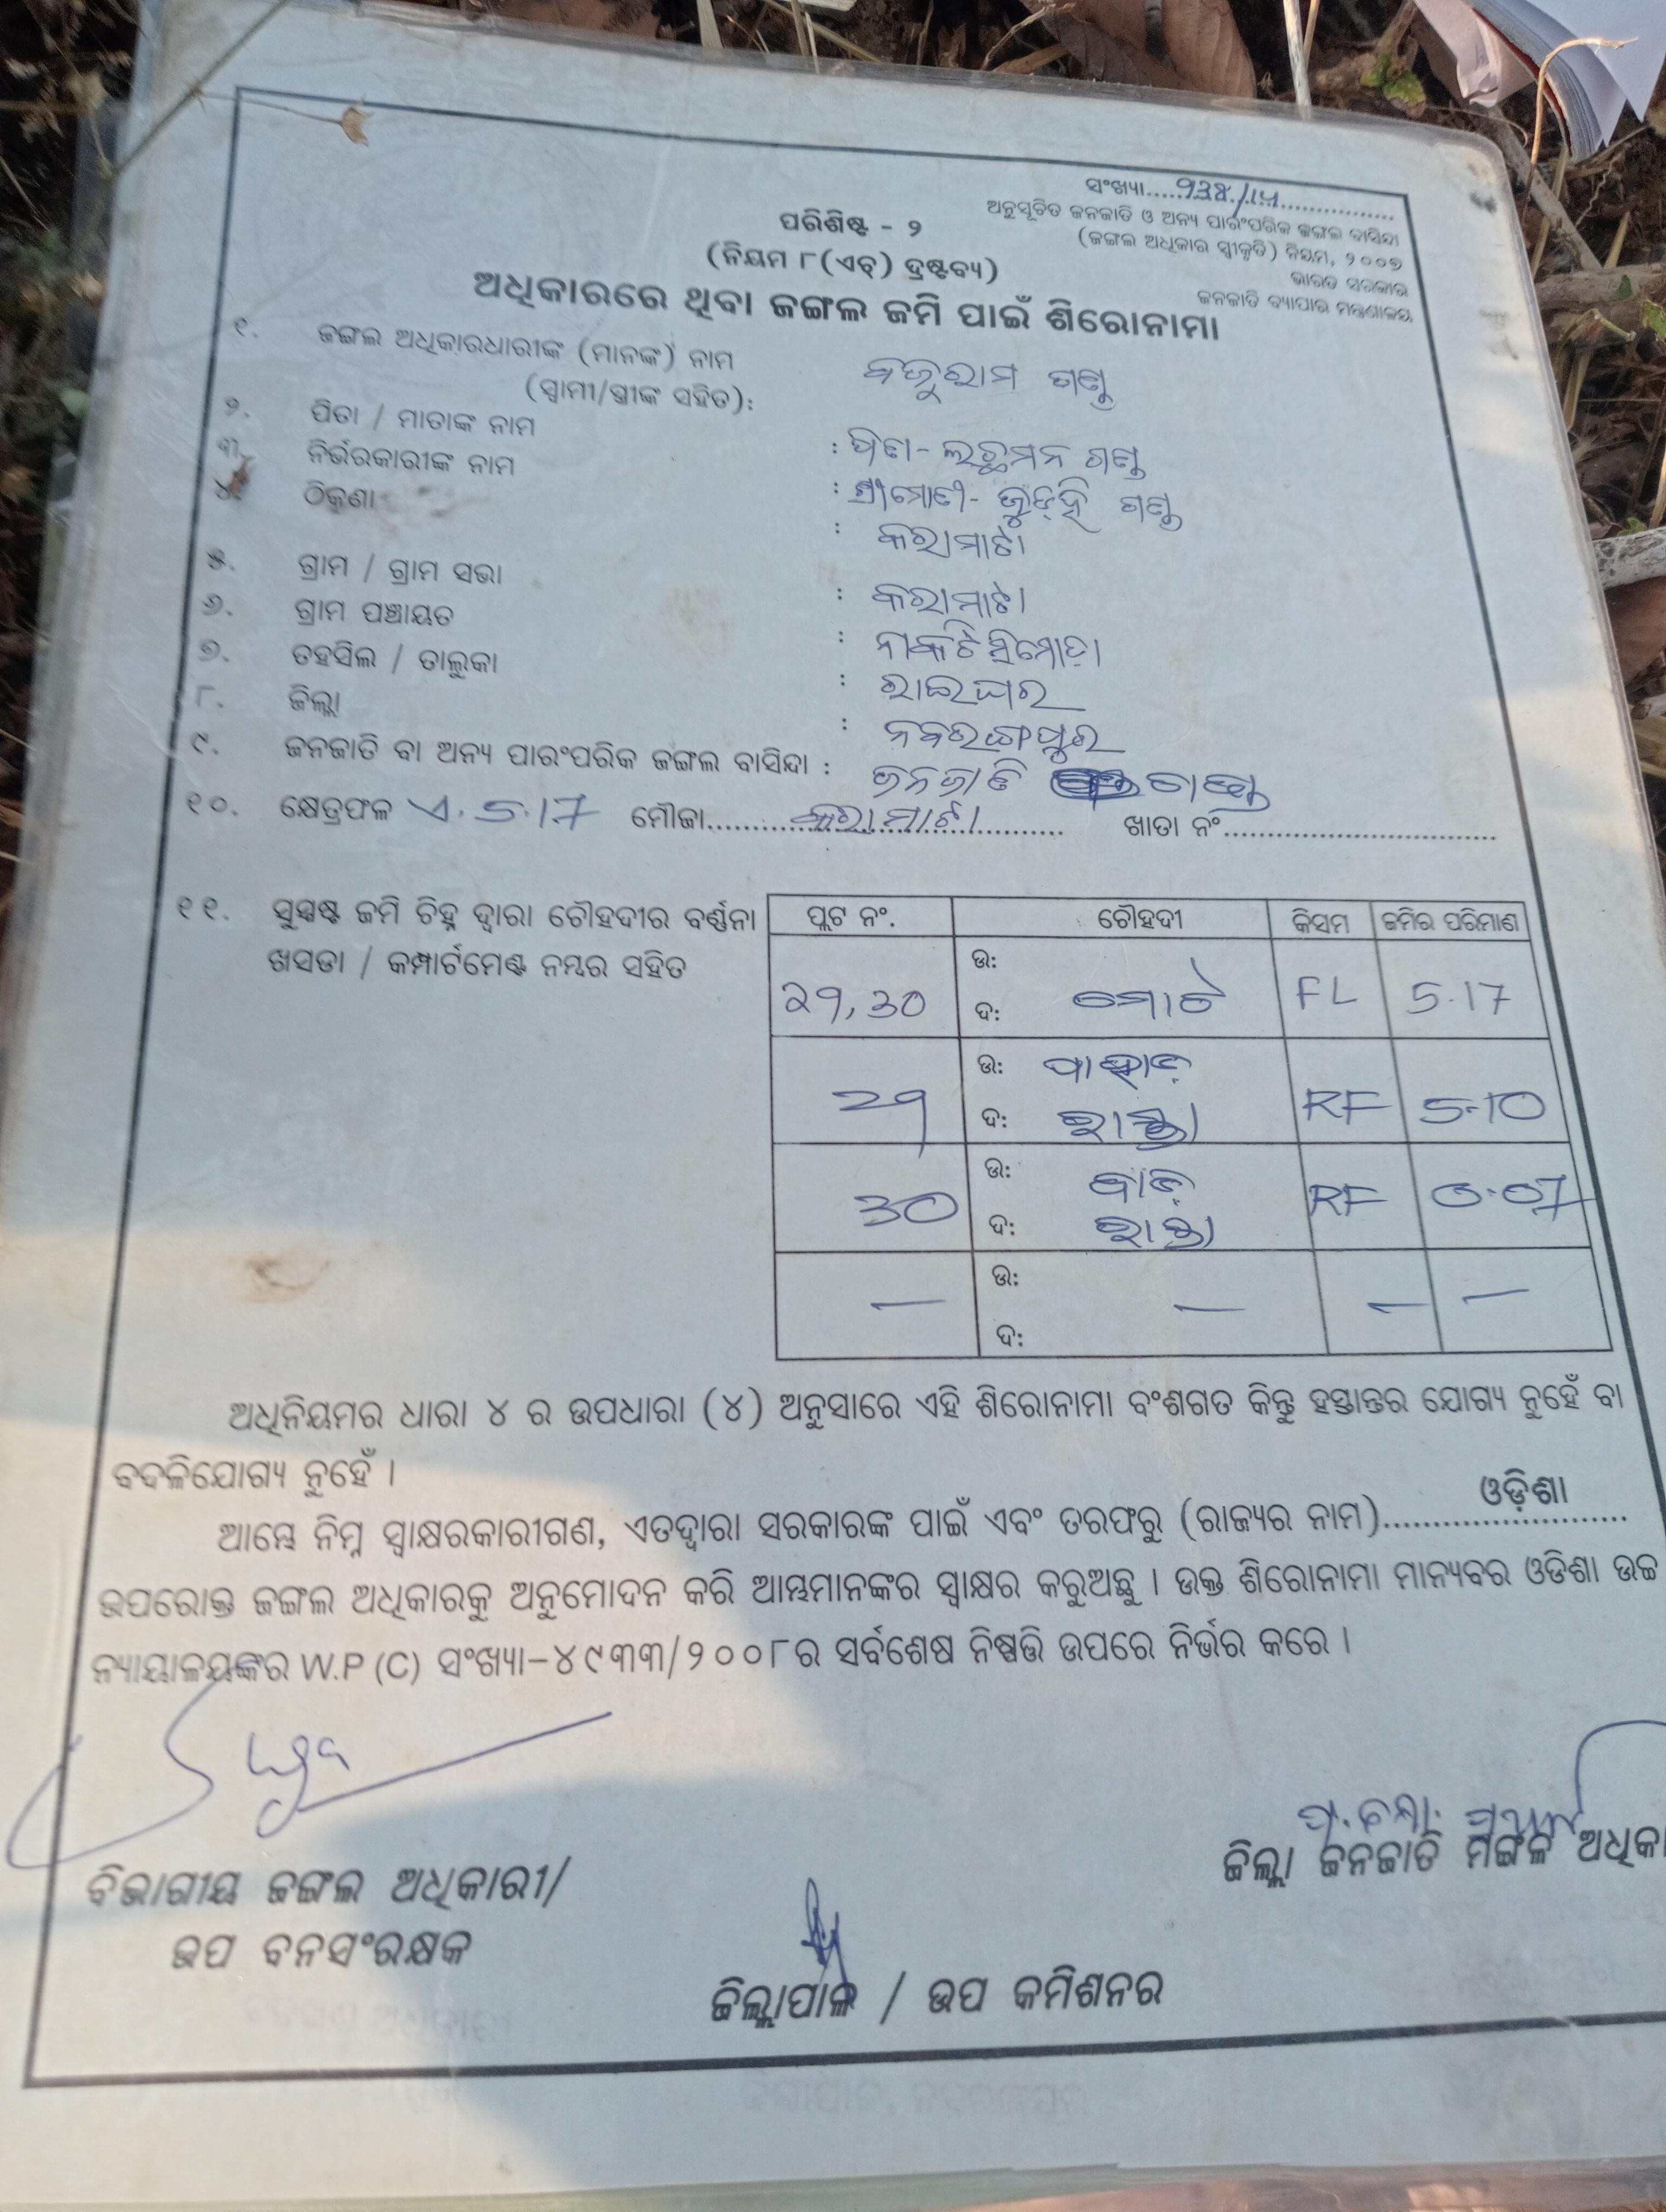 ସଂଖ୍ୟା.....୨୩୪/୧୪................
ଅନୁସୂଚିତ ଜନଜାତି ଓ ଅନ୍ୟ ପାରଂପରିକ ଜଙ୍ଗଲ ବାସିନ୍ଦା
(ଜଙ୍ଗଲ ଅଧିକାର ସ୍ୱୀକୃତି) ନିୟମ, ୨୦୦୭
ଭାରତ ସରକାର
ଜନଜାତି ବ୍ୟାପାର ମନ୍ତ୍ରଣାଳୟ
ପରିଶିଷ୍ଟ - ୨
(ନିୟମ ୮(ଏଚ୍) ଦ୍ରଷ୍ଟବ୍ୟ)
ଅଧିକାରରେ ଥିବା ଜଙ୍ଗଲ ଜମି ପାଇଁ ଶିରୋନାମା
୧. ଜଙ୍ଗଲ ଅଧିକାରଧାରୀଙ୍କ (ମାନଙ୍କ) ନାମ
(ସ୍ୱାମୀ/ସ୍ତ୍ରୀଙ୍କ ସହିତ): ବଜୁରାମ ଗଣ୍ଡ
୨. ପିତା / ମାତାଙ୍କ ନାମ : ପିତା- ଲଚ୍ଛମନ ଗଣ୍ଡ
୩. ନିର୍ଭରକାରୀଙ୍କ ନାମ : ଶ୍ରୀମୋତୀ- ଗଣ୍ଡ
୪. ଠିକଣା : କରାମାଟା
୫. ଗ୍ରାମ / ଗ୍ରାମ ସଭା : କରାମାଟା
୬. ଗ୍ରାମ ପଞ୍ଚାୟତ : ନାକଟିସିମୋଡ଼ା
୭. ତହସିଲ / ତାଲୁକା : ରାଇଘର
୮. ଜିଲ୍ଲା : ନବରଙ୍ଗପୁର
୯. ଜନଜାତି ବା ଅନ୍ୟ ପାରଂପରିକ ଜଙ୍ଗଲ ବାସିନ୍ଦା : ଜନଜାତି ଗଣ୍ଡ
୧୦. କ୍ଷେତ୍ରଫଳ ଏ. 5.17 ମୌଜା.....କରାମାଟା..... ଖାତା ନଂ.....................
୧୧. ସୁସ୍ପଷ୍ଟ ଜମି ଚିହ୍ନ ଦ୍ୱାରା ଚୌହଦୀର ବର୍ଣ୍ଣନା
ଖସଡା / କମ୍ପାର୍ଟମେଣ୍ଟ ନମ୍ଭର ସହିତ
ପ୍ଲଟ ନଂ. ଚୌହଦୀ କିସମ ଜମିର ପରିମାଣ
ଉ:
29, 30 ଦ: ମୋଟ FL 5.17
ଉ: ପାହାଡ଼
29 ଦ: ରାସ୍ତା RF 5.10
ଉ: ବାଡ଼ି
30 ଦ: ରାସ୍ତା RF 0.07
ଉ:
— — — —
ଦ:
ଅଧିନିୟମର ଧାରା ୪ ର ଉପଧାରା (୪) ଅନୁସାରେ ଏହି ଶିରୋନାମା ବଂଶଗତ କିନ୍ତୁ ହସ୍ତାନ୍ତର ଯୋଗ୍ୟ ନୁହେଁ ବା
ବଦଳିଯୋଗ୍ୟ ନୁହେଁ ।
ଆମ୍ଭେ ନିମ୍ନ ସ୍ୱାକ୍ଷରକାରୀଗଣ, ଏତଦ୍ୱାରା ସରକାରଙ୍କ ପାଇଁ ଏବଂ ତରଫରୁ (ରାଜ୍ୟର ନାମ)....ଓଡ଼ିଶା....
ଉପରୋକ୍ତ ଜଙ୍ଗଲ ଅଧିକାରକୁ ଅନୁମୋଦନ କରି ଆମ୍ଭମାନଙ୍କର ସ୍ୱାକ୍ଷର କରୁଅଛୁ । ଉକ୍ତ ଶିରୋନାମା ମାନ୍ୟବର ଓଡିଶା ଉଚ୍ଚ
ନ୍ୟାୟାଳୟଙ୍କର W.P (C) ସଂଖ୍ୟା-୪୯୩୩/୨୦୦୮ର ସର୍ବଶେଷ ନିଷ୍ପତ୍ତି ଉପରେ ନିର୍ଭର କରେ ।
ବିଭାଗୀୟ ଜଙ୍ଗଲ ଅଧିକାରୀ/
ଉପ ବନସଂରକ୍ଷକ
ଜିଲ୍ଲା ଜନଜାତି ମଙ୍ଗଳ ଅଧିକା
ଜିଲ୍ଲାପାଳ / ଉପ କମିଶନର